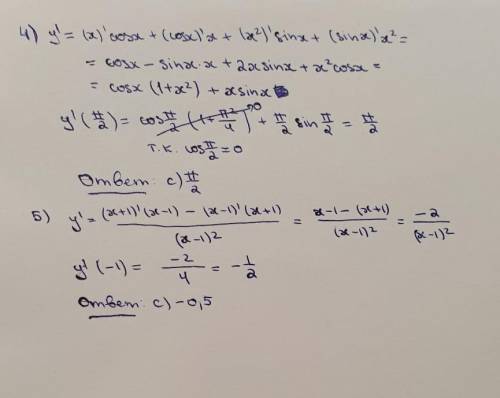 4) y' = (x)'cosx + (cosx)'x + (x²)'sinx + (sinx)'x² =
= cosx - sinx·x + 2xsinx + x²cosx =
= cosx (1+x²) + xsinx
y'(π/2) = cos π/2 (1+π²/4)^0 + π/2 sin π/2 = π/2
т.к. cos π/2 = 0
Ответ: c) π/2
5) y' = ((x+1)'(x-1) - (x-1)'(x+1))/(x-1)² = (x-1-(x+1))/(x-1)² = -2/(x-1)²
y'(-1) = -2/4 = -1/2
Ответ: c) -0,5